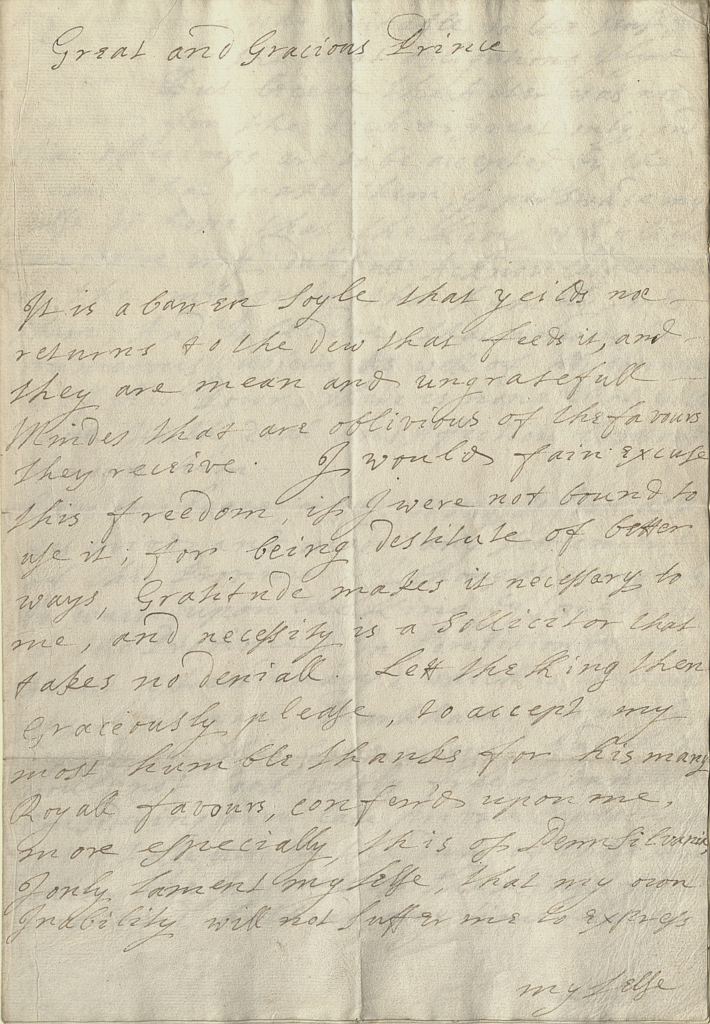 Great and Gracious Prince
It is a barren soyle that yeilds noe
returns to the dew that feeds it, and
they are mean and ungratefull
Mindes that are oblivious of the favours
they receive. I would fain excuse
this freedom, if I were not bound to
use it; for being destitute of better
ways, Gratitude makes it necessary to
me, and necessity is a Sollicitor that
takes no deniall. Lett the King then
Graceously please, to accept my
most humble thanks for his many
Royall favours, confer'd upon me,
more especially this of Pennsilvania,
I only lament my selfe, that my own
Inability will not suffer me to express
my selfe